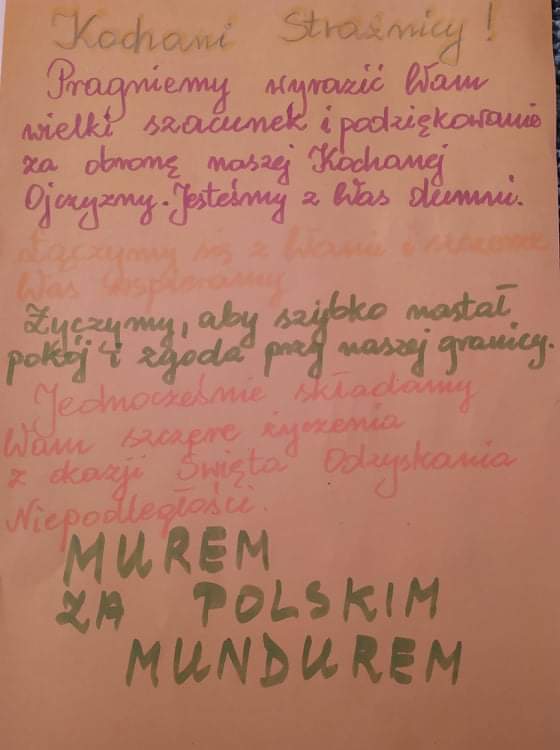 Kochani Strażnicy!
Pragniemy wyrazić Wam
wielki szacunek i podziękowanie
za obronę naszej Kochanej
Ojczyzny. Jesteśmy z Was dumni.
Łączymy się z Wami i szczerze
Was wspieramy
Życzymy, aby szybko nastał
pokój i zgoda przy naszej granicy.
Jednocześnie składamy
Wam szczere życzenia
z okazji Święta Odzyskania
Niepodległości.
MUREM
ZA POLSKIM
MUNDUREM